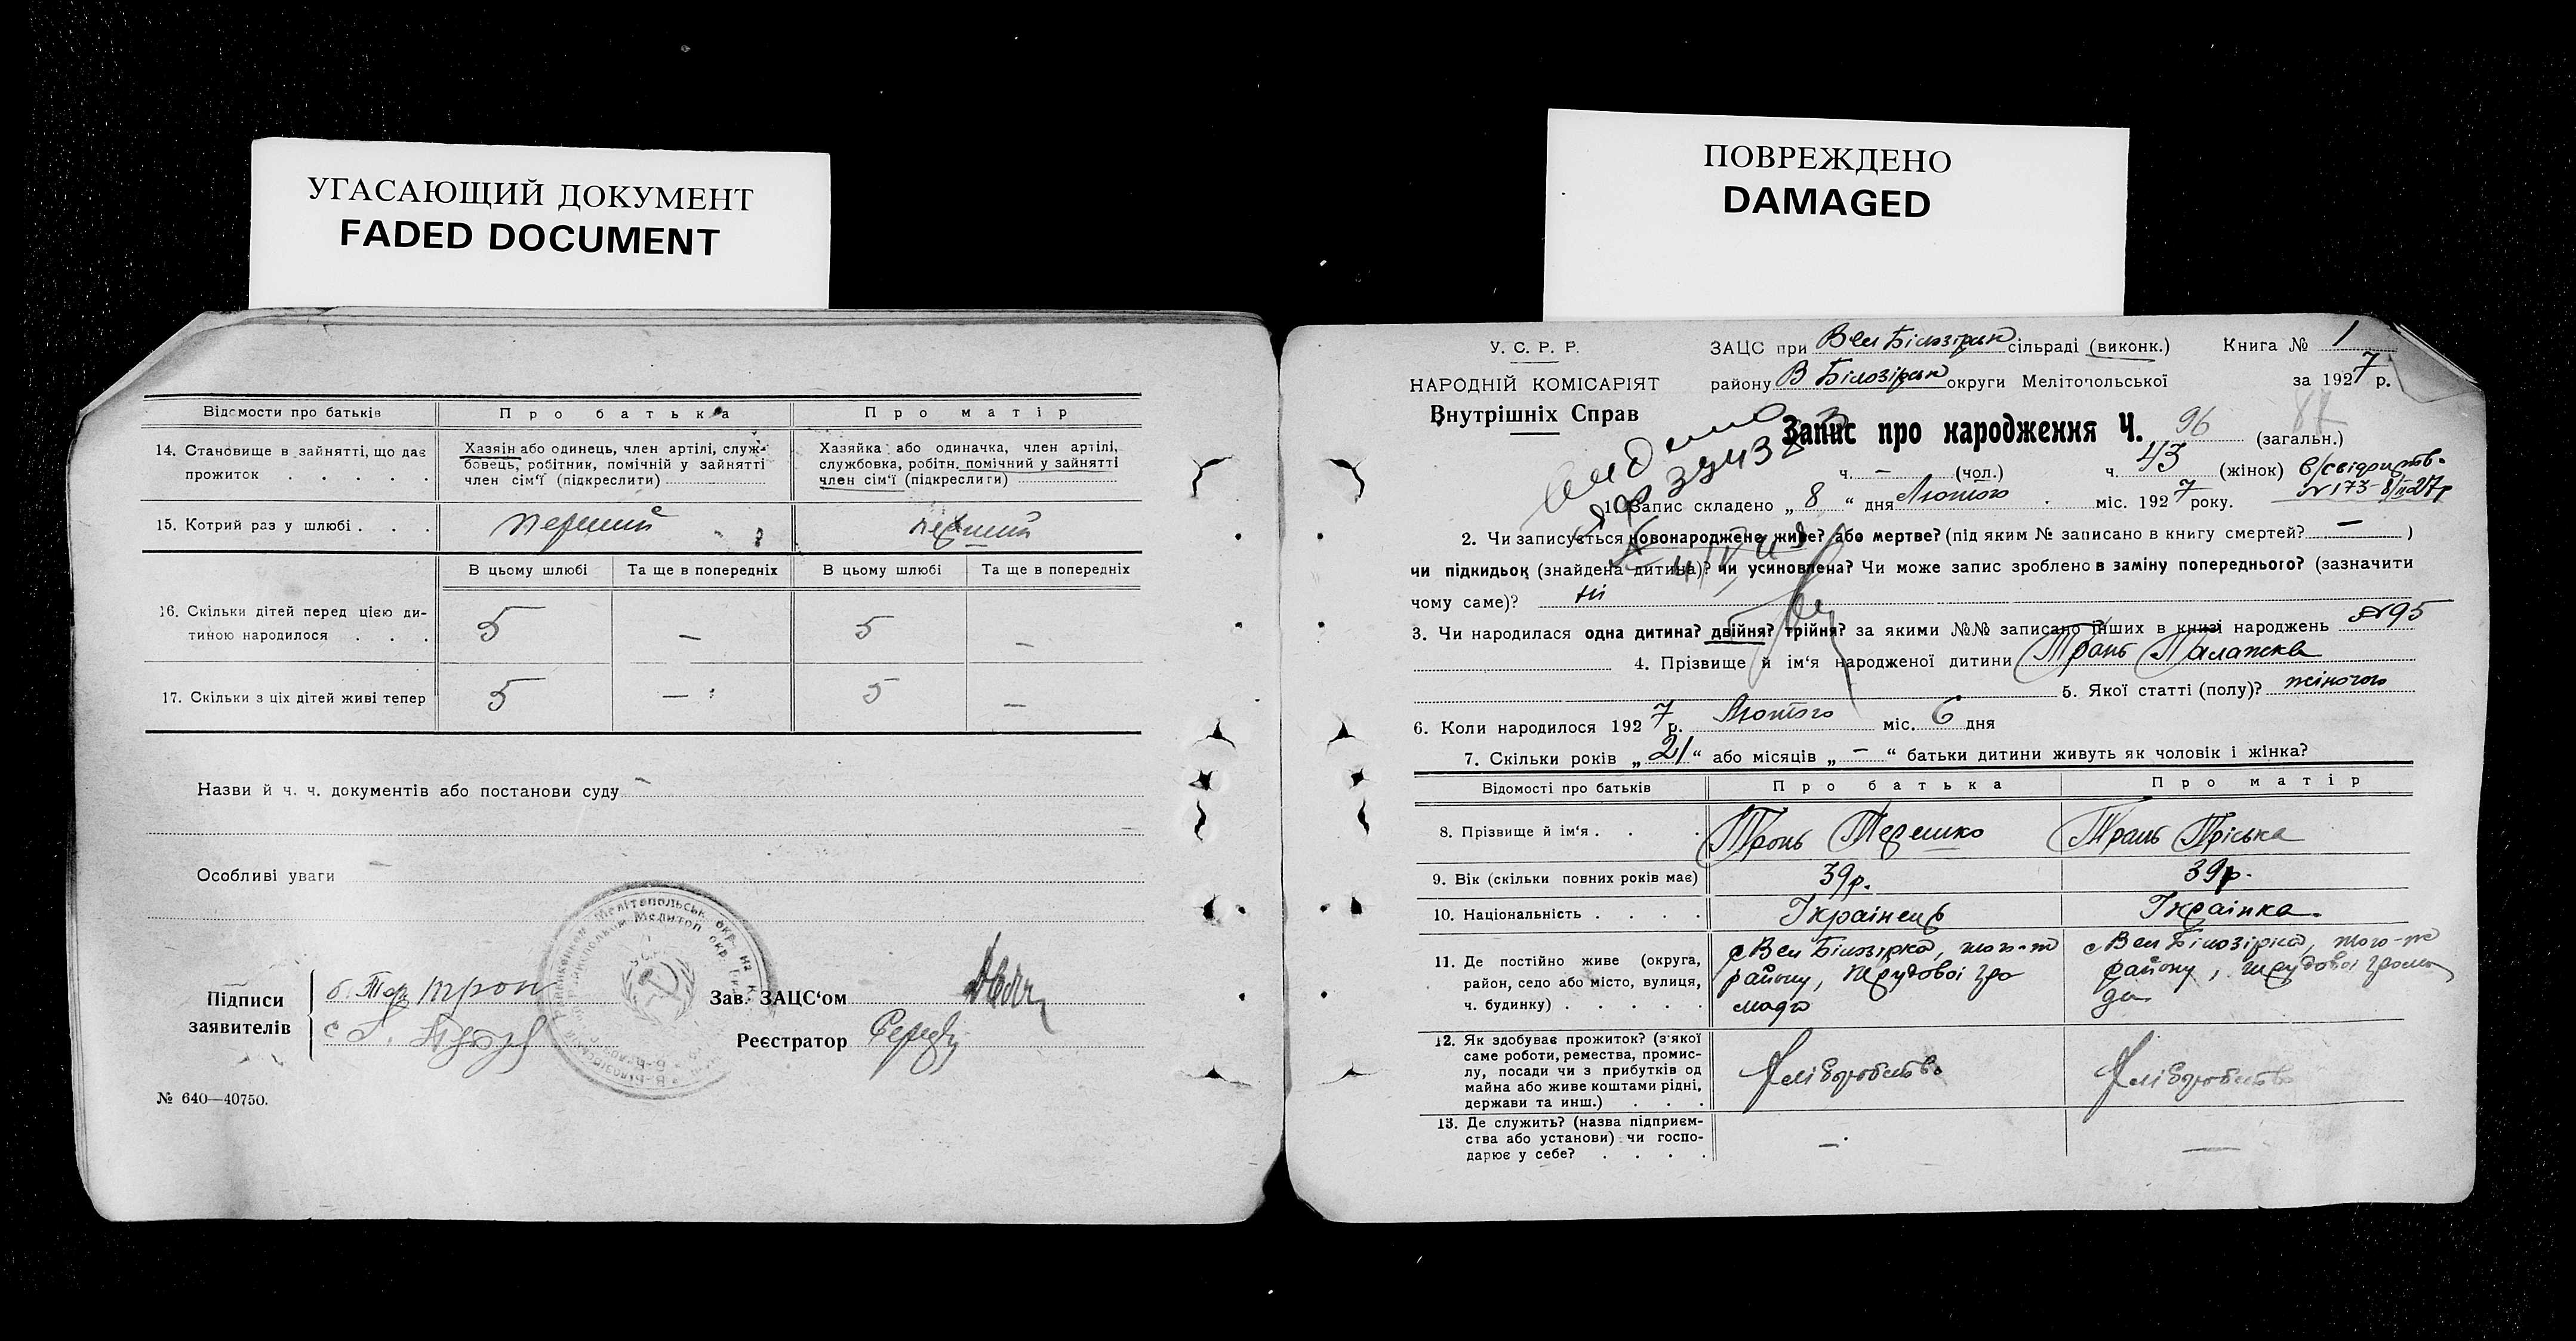 УГАСАЮЩИЙ ДОКУМЕНТ
FADED DOCUMENT
Відомости про батьків
Про батька
Про матір
14. Становище в зайнятті, що дає
прожиток . . . . .
Хазяін або одинець, член артілі, служ-
бовець, робітник, помічній у зайнятті
член сім'ї (підкреслити)
Хазяйка або одиначка, член артілі,
службовка, робітн. помічний у зайнятті
член сім'ї (підкреслити)
15. Котрий раз у шлюбі . . .
перший
перший
В цьому шлюбі
Та ще в попередніх
В цьому шлюбі
Та ще в попередніх
16. Скільки дітей перед цією ди-
тиною народилося . . .
5 — 5 —
17. Скільки з ціх дітей живі тепер
5 — 5 —
Назви й ч. ч. документів або постанови суду —
Особливі уваги
Підписи
заявителів
Зав. ЗАЦС'ом
Реєстратор
№ 640—40750.
ПОВРЕЖДЕНО
DAMAGED
У. С. Р. Р.
НАРОДНІЙ КОМІСАРІЯТ
Внутрішніх Справ
ЗАЦС при Вел Білозірск сільраді (виконк.) Книга № 1
району В Білозірск округи Мелітопольської за 1927 р.
Запис про народження Ч. 96 (загальн.)
ч. — (чол.) ч. 43 (жінок)
№173 8/II 27р
1. Запис складено „ 8 “ дня Лютого міс. 1927 року.
2. Чи записується новонароджене живе? або мертве? (під яким № записано в книгу смертей? — )
чи підкидьок (знайдена дитина)? чи усиновлена? Чи може запис зроблено в заміну попереднього? (зазначити
чому саме)? ні
3. Чи народилася одна дитина? двійня? трійня? за якими №№ записано інших в книзі народжень №95
4. Прізвище й ім'я народженої дитини Тронь Палажка
5. Якої статті (полу)? жіночого
6. Коли народилося 1927 р. Лютого міс. 6 дня
7. Скільки років „ 21 “ або місяців „ — “ батьки дитини живуть як чоловік і жінка?
Відомості про батьків
Про батька
Про матір
8. Прізвище й ім'я . . .
Тронь Терешко
Тронь Пріська
9. Вік (скільки повних років має)
39р.
39р.
10. Національність . . . .
Українець
Українка.
11. Де постійно живе (округа,
район, село або місто, вулиця,
ч. будинку) . . . . .
с Вел Білозірка, того-ж
району, трудової гро
мади
с Вел Білозірка, того-же
району, трудової грома
ди
12. Як здобуває прожиток? (з'якої
саме роботи, ремества, промис-
лу, посади чи з прибутків од
майна або живе коштами рідні,
держави та инш.) . . .
Хліборобство
Хліборобство
13. Де служить? (назва підприєм-
ства або установи) чи госпо-
дарює у себе? . . . .
—
—